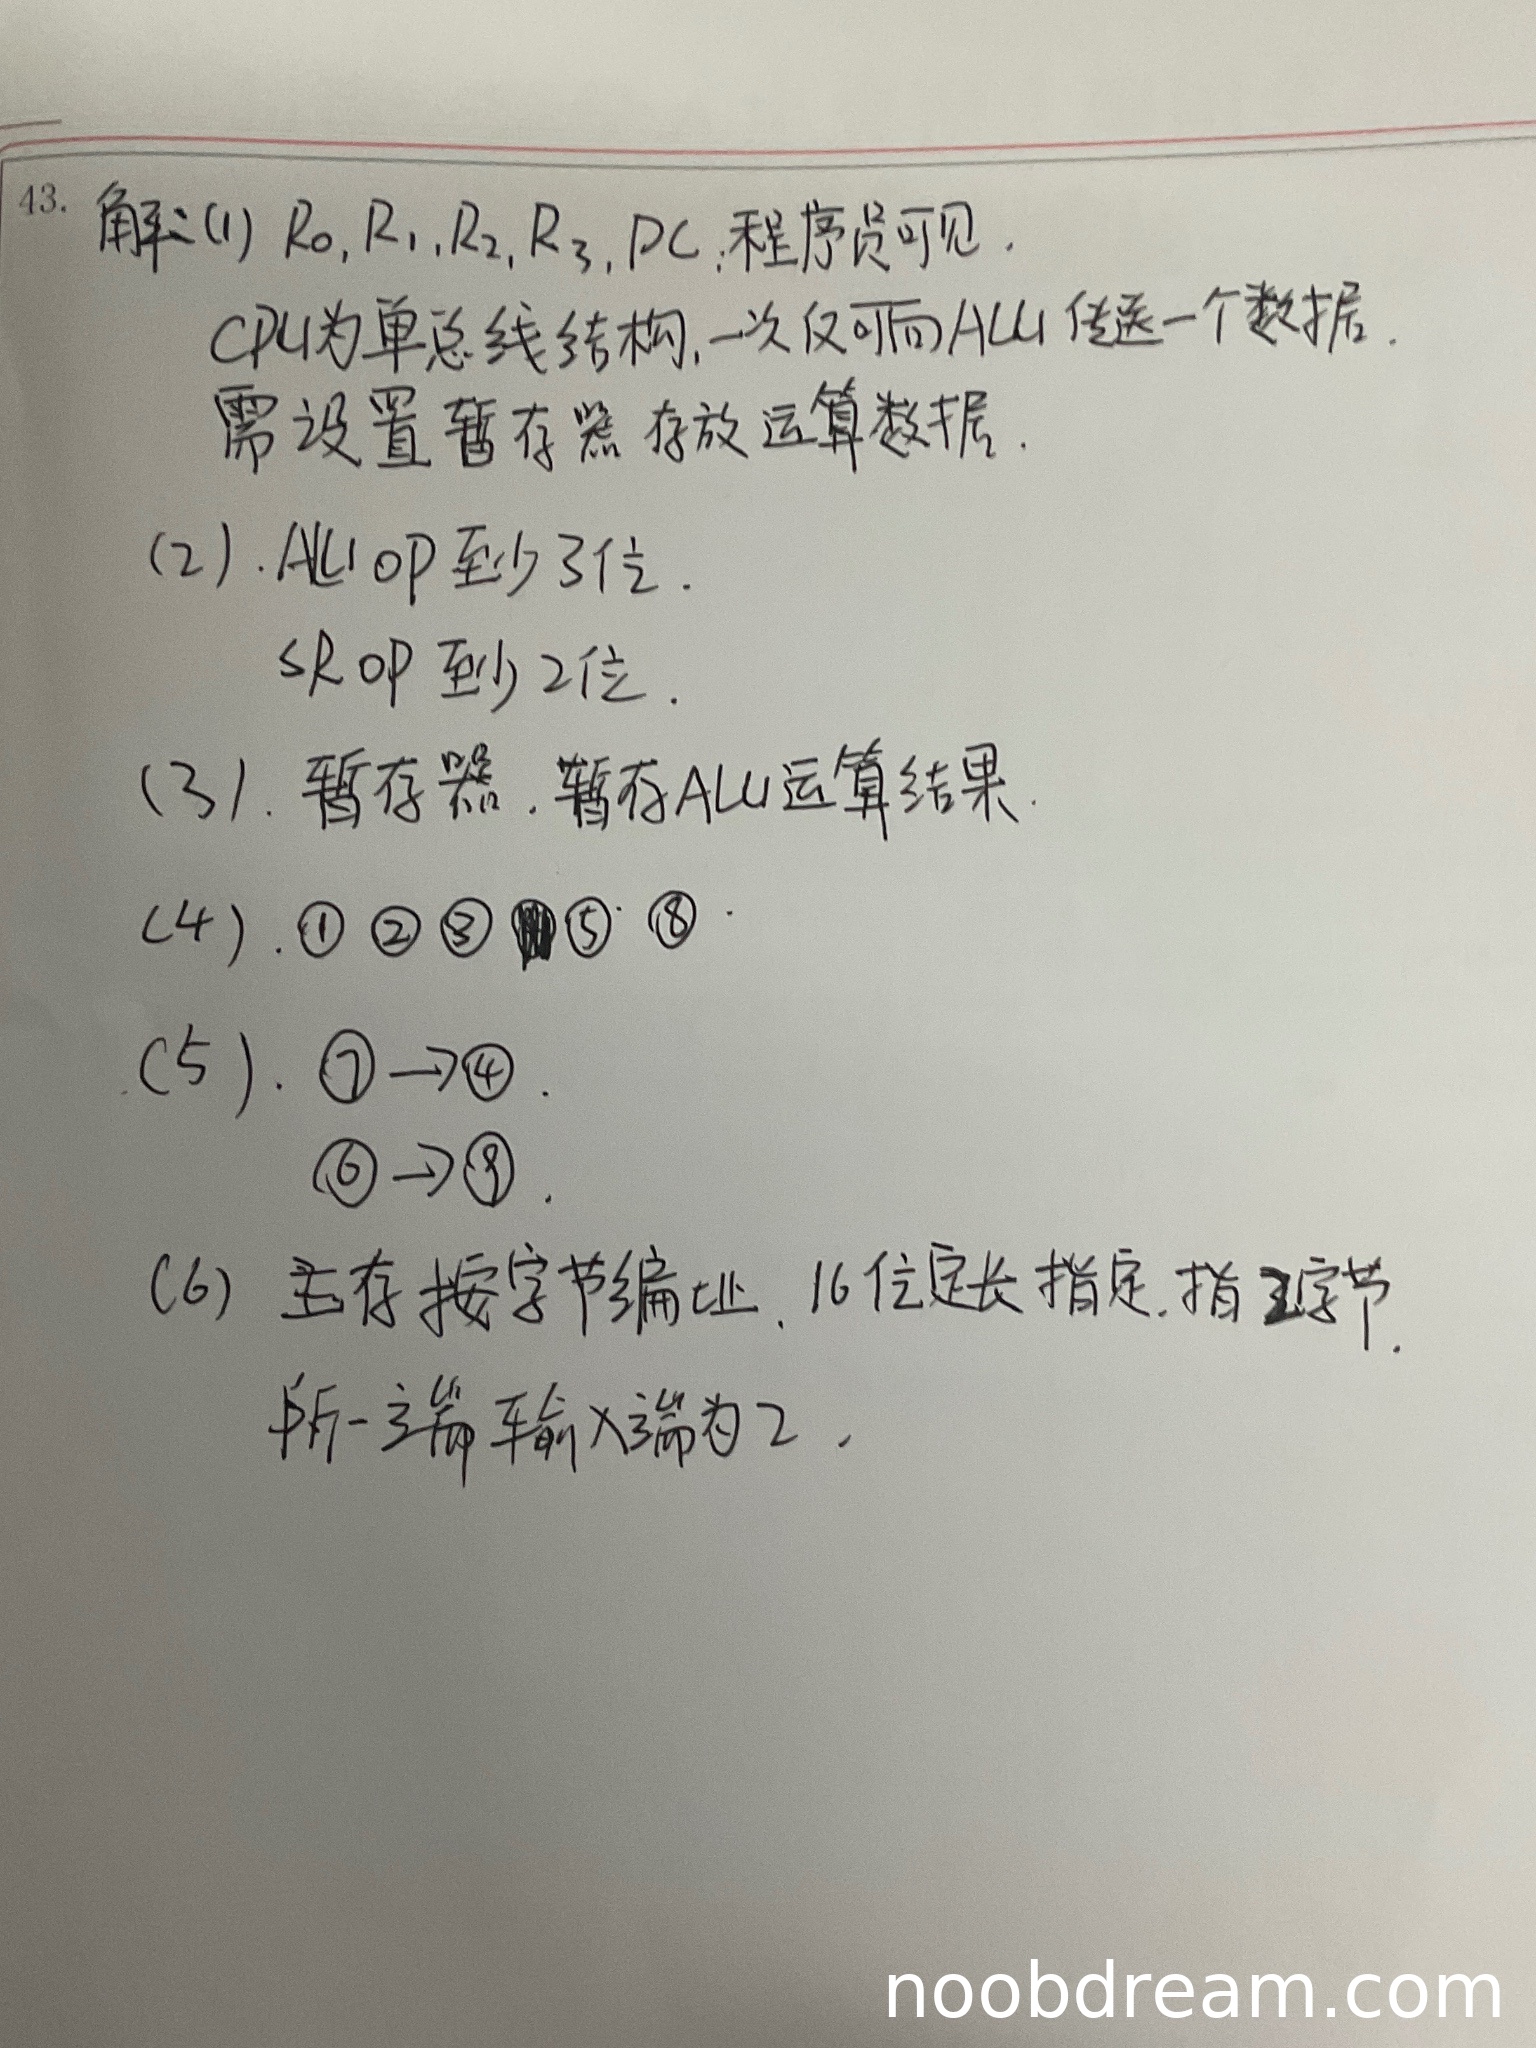 43. 解:(1) R0, R1, R2, R3, PC:程序员可见.
CPU为单总线结构,一次仅可向ALU传送一个数据.
需设置暂存器存放运算数据.
(2). ALU op 至少3位.
SR OP 至少2位.
(3). 暂存器.暂存ALU运算结果.
(4). ① ② ③ ⑤ ⑧.
(5). ⑦→④.
⑥→⑨.
(6) 主存按字节编址, 16位定长指定.指2字节.
所一端 输入端为2.
noobdream.com